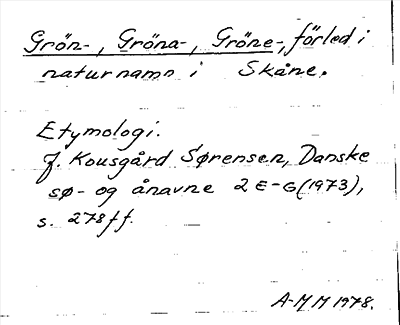 Grön-, Gröna-, Gröne-, förled i
naturnamn i Skåne.
Etymologi.
Jf. Kousgård Sørensen, Danske
sø- og ånavne 2 E-G (1973),
s. 278 ff.
A-MM 1978.